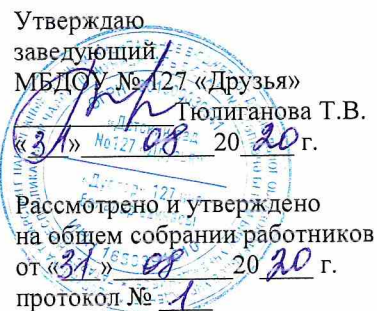 Утверждаю
заведующий
МБДОУ № 127 «Друзья»
Тюлиганова Т.В.
«31» 08 2020 г.
Рассмотрено и утверждено
на общем собрании работников
от «31» 08 2020 г.
протокол № 1